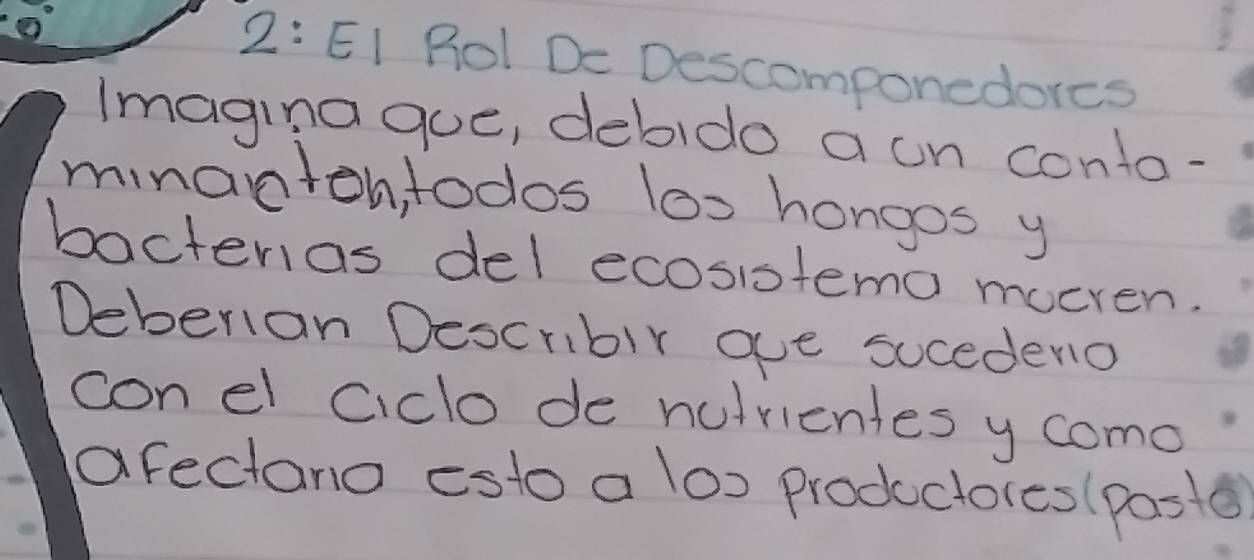 2: El Rol De Descomponedores
Imagina que, debido a un conta-
minanton, todos los hongos y
bacterias del ecosistema mueren.
Deberian Describir que sucederia
con el ciclo de nutrientes y como
afectaria esto a los productores (pasto)